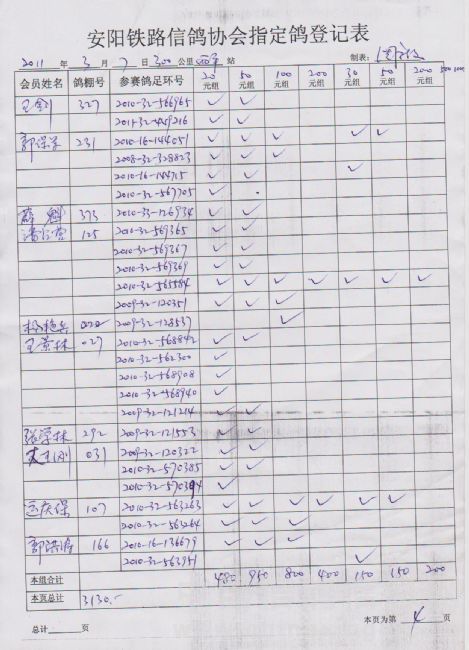 安阳铁路信鸽协会指定鸽登记表
2011 年 3 月 7 日 300 公里 站 制表:
会员姓名 鸽棚号 参赛鸽足环号 20元组 50元组 100元组 200元组 30元组 50元组 200元组
327 2010-32-566965 ✓ ✓
✓ ✓
231 2010-16-144051 ✓ ✓ ✓ ✓ ✓
2008-32-328823 ✓ ✓ ✓
2010-16-144715 ✓ ✓ ✓
2010-32-567705 ✓
373 ✓ ✓
125 2010-32-569365 ✓ ✓
2010-32-569367 ✓ ✓
2010-32-569369 ✓ ✓
2010-32-565584 ✓ ✓ ✓ ✓ ✓ ✓ ✓
2009-32-120351 ✓ ✓ ✓
2009-32-128537 ✓
王黄林 027 2010-32-568842 ✓ ✓
2010-32-562300 ✓
2010-32-568908 ✓
2010-32-568940 ✓
2009-32-121214 ✓ ✓
张学林 292 2009-32-121553 ✓ ✓
031 2009-32-120322 ✓ ✓
2010-32-570385 ✓ ✓
2010-32-570394 ✓ ✓
107 2010-32-563263 ✓ ✓ ✓ ✓ ✓ ✓
2010-32-563264 ✓ ✓ ✓
166 2010-16-136679 ✓ ✓ ✓
2010-32-563951 ✓
本组合计 480 950 800 400 150 150 200
本页总计 3130.-
总计 页 本页为第 4 页